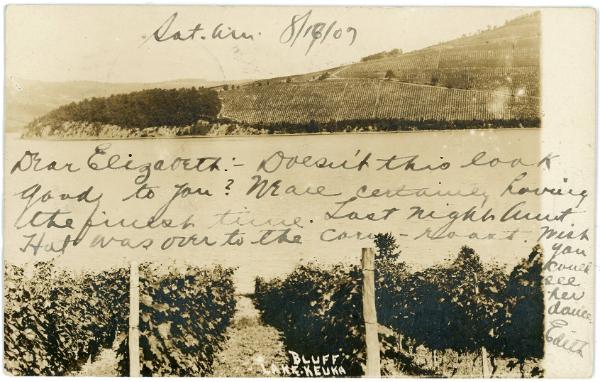 Sat. Am. 8/18/07
Dear Elizabeth:- Doesn't this look
good to you? We are certainly having
the finest time. Last night Aunt
Hat was over to the corn-roast. Wish
you
could
see
her
dance
Edith
BLUFF
LAKE KEUKA